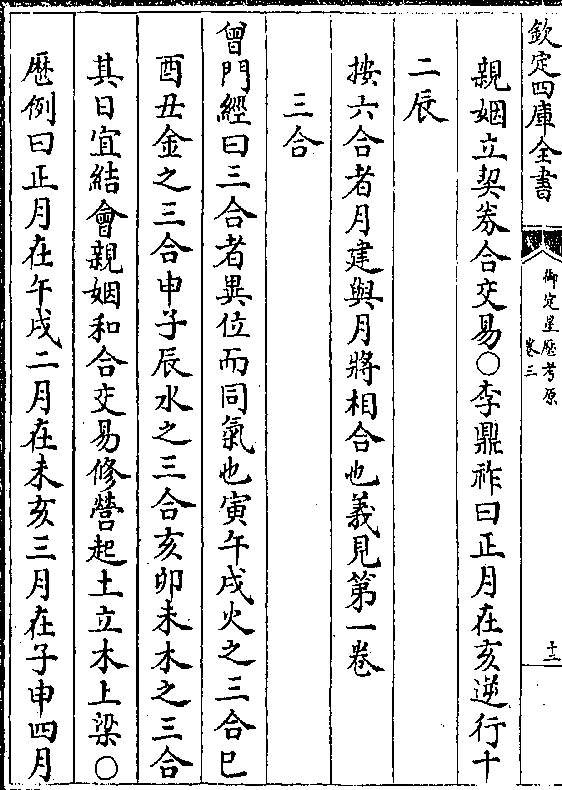 欽定四庫全書
御定星歷考原
卷三
十二
親姻立契券合交易○李鼎祚曰正月在亥逆行十
二辰
按六合者月建與月將相合也義見第一卷
三合
曾門經曰三合者異位而同氣也寅午戌火之三合巳
酉丑金之三合申子辰水之三合亥卯未木之三合
其日宜結會親姻和合交易修營起土立木上梁○
歷例曰正月在午戌二月在未亥三月在子申四月